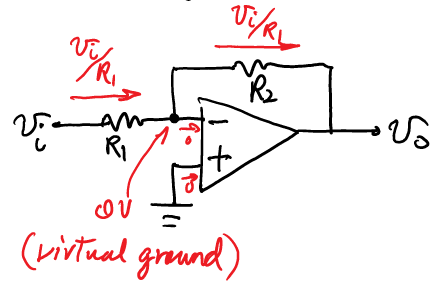 Vi/R1
Vi/R1
R2
Vi
R1
-
0
+
0
Vo
0V
(virtual ground)